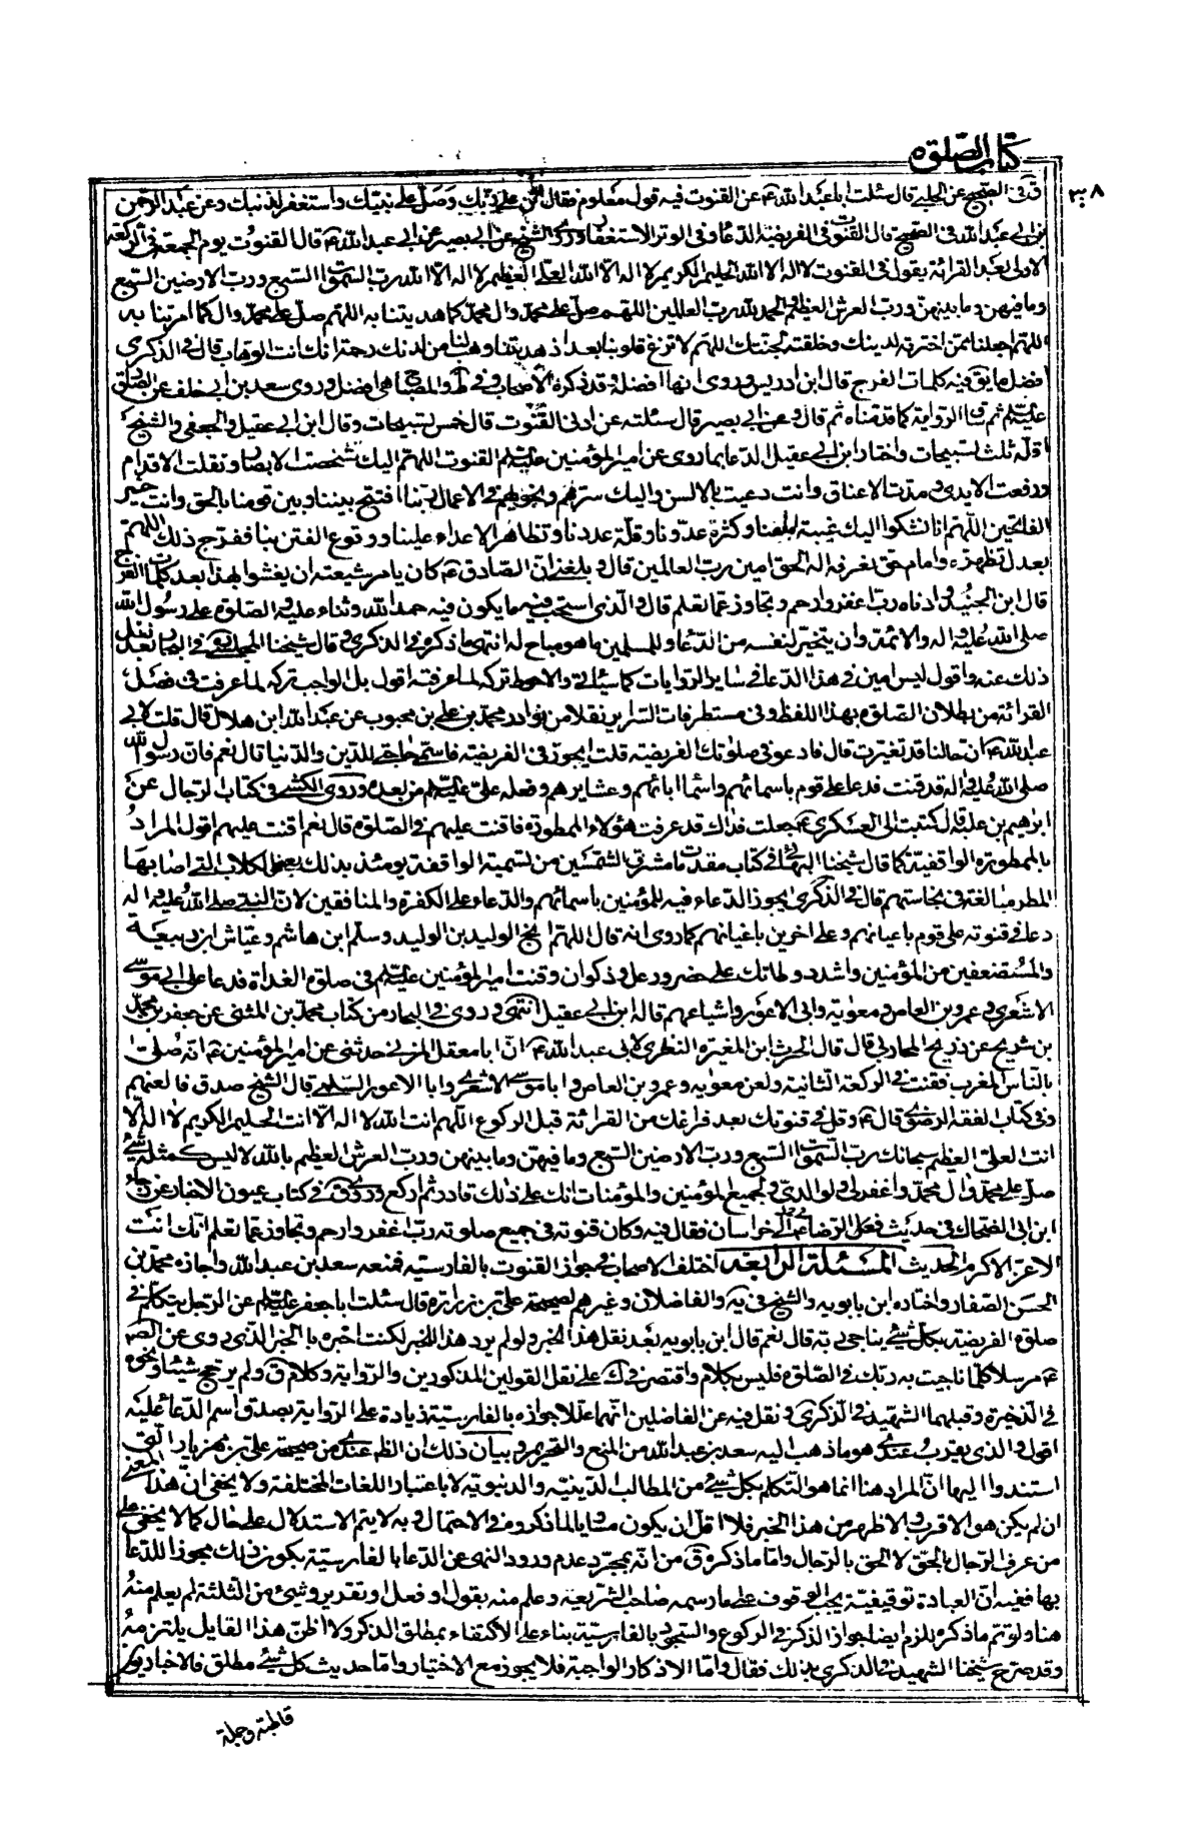 كتاب الصلوة
٣٠٨
في الصحيح عن الحلبي قال سئلت ابا عبد الله ع عن القنوت فيه قول معلوم فقال اثن على ربك وصل على نبيك واستغفر لذنبك وعن عبد الرحمن
بن ابي عبد الله في الصحيح قال القنوت في الفريضة الدعاء وفي الوتر الاستغفار وروى الشيخ عن ابي بصير عن ابي عبد الله ع قال القنوت يوم الجمعة في الركعة
الاولى بعد القرائة يقول في القنوت لا اله الا الله الحليم الكريم لا اله الا الله العلي العظيم لا اله الا الله رب السموات السبع ورب الارضين السبع
وما فيهن وما بينهن ورب العرش العظيم والحمد لله رب العالمين اللهم صل على محمد وال محمد كما هديتنا به اللهم صل على محمد وال كما امرتنا به
اللهم اجعلنا ممن اخترته لدينك وخلقته لجنتك اللهم لا تزغ قلوبنا بعد اذ هديتنا وهب لنا من لدنك رحمة انك انت الوهاب قال في الذكرى
افضل ما يق فيه كلمات الفرج قال ابن ادريس وروى انها افضل وقد ذكره الاصحاب وفي ط والمصباح هي افضل وروى سعد بن ابي خلف عن الصادق
عليه السلم ثم ساق الرواية كما قدمناه ثم قال وعن ابي بصير قال سئلته عن ادنى القنوت قال خمس تسبيحات وقال ابن ابي عقيل والجعفي والشيخ
اقله ثلث تسبيحات واختار ابن ابي عقيل الدعا بما روى عن امير المؤمنين عليه السلم في القنوت اللهم اليك شخصت الابصار ونقلت الاقدام
ورفعت الايدي ومدت الاعناق وانت دعيت بالالسن واليك سرهم ونجويهم في الاعمال ربنا افتح بيننا وبين قومنا بالحق وانت خير
الفاتحين اللهم انا نشكوا اليك غيبة امامنا وكثرة عدونا وقلة عددنا وتظاهر الاعداء علينا ووقوع الفتن بنا ففرج ذلك اللهم
بعدل تظهره وامام حق نعرفه اله الحق امين رب العالمين قال وبلغني ان الصادق ع كان يامر شيعته ان يقنتوا بهذا بعد كلمات الفرج
قال ابن الجنيد وادناه رب اغفر وارحم وتجاوز عما تعلم قال والذي استحب فيه ما يكون فيه حمد الله وثناء عليه والصلوة على رسول الله
صلى الله عليه واله والائمة وان يتخير لنفسه من الدعاء وللمسلمين ما هو مباح له انتهى ما ذكره في الذكرى وقال شيخنا المجلسي في البحار بعد نقل
ذلك عنه واقول ليس امين في هذا الدعا في ساير الروايات كما سيأتي والاحوط تركه لما عرفت اقول بل الواجب تركه لما عرفت في فصل
القرائة من بطلان الصلوة بهذا اللفظ وفي مستطرفات السراير نقلا من نوادر محمد بن علي بن محبوب عن عبد الله ابن هلال قال قلت لابي
عبد الله ع ان حالنا قد تغيرت قال فادعو في صلوتك الفريضة قلت ايجوز في الفريضة فاسمى حاجتي للدين والدنيا قال نعم فان رسول الله
صلى الله عليه واله قد قنت فدعا على قوم باسمائهم واسماء ابائهم وعشايرهم وفعله علي عليه السلم من بعده وروى الكشي في كتاب الرجال عن
ابرهيم بن عقبة قال كتبت الى العسكري ع جعلت فداك قد عرفت هؤلاء الممطورة فاقنت عليهم في الصلوة قال نعم اقنت عليهم اقول المراد
بالممطورة الواقفية كما قال شيخنا البهائي في كتاب مشرق الشمسين من تسمية الواقفة يومئذ بذلك يعني الكلاب التي اصابها
المطر مبالغة في نجاستهم قال في الذكرى يجوز الدعاء فيه للمؤمنين باسمائهم والدعاء على الكفرة والمنافقين لان النبي صلى الله عليه واله
دعا في قنوته على قوم باعيانهم وعلى اخرين باعيانهم كما روى انه قال اللهم انج الوليد بن الوليد وسلم ابن هاشم وعياش ابن ربيعة
والمستضعفين من المؤمنين واشدد وطاتك على مضر ورعل وذكوان وقنت امير المؤمنين عليه السلم في صلوة الغداة فدعا على ابي موسى
الاشعري وعمرو بن العاص ومعوية وابي الاعور واشياعهم قاله ابن ابي عقيل انتهى وروى في البحار من كتاب محمد بن المثنى عن جعفر بن محمد
بن شريح عن ذريح المحاربي قال قال الحرث ابن المغيرة النظري لابي عبد الله ع ان ابا معقل المزني حدثني عن امير المؤمنين ع انه صلى
بالناس المغرب فقنت في الركعة الثانية ولعن معوية وعمرو بن العاص وابا موسى الاشعري وابا الاعور السلمي قال الشيخ صدق فالعنهم
وفي كتاب الفقه الرضوي قال ع وقل في قنوتك بعد فراغك من القرائة قبل الركوع اللهم انت الله لا اله الا انت الحليم الكريم لا اله الا
انت العلي العظيم سبحانك رب السموات السبع ورب الارضين السبع وما فيهن وما بينهن ورب العرش العظيم يا الله لا ليس كمثله شيء
صل على محمد وال محمد واغفر لي ولوالدي ولجميع المؤمنين والمؤمنات انك على ذلك قادر ثم اركع وروى ق في كتاب عيون الاخبار عن رجاء
ابن ابي الضحاك في حديث فعل الرضا ع في خراسان فقال فيه وكان قنوته في جميع صلوته رب اغفر وارحم وتجاوز عما تعلم انك انت
الاعز الاكرم الحديث المسئلة الرابعة اختلف الاصحاب في جواز القنوت بالفارسية فمنعه سعد بن عبد الله واجازه محمد بن
الحسن الصفار واختاره ابن بابويه والشيخ في يه والفاضلان وغيرهم لصحيحة علي بن مهزيار قال سئلت ابا جعفر عليه السلم عن الرجل يتكلم في
صلوة الفريضة بكل شيء يناجي ربه قال نعم قال ابن بابويه بعد نقل هذا الخبر ولو لم يرد هذا الخبر لكنت اخبره بالخبر الذي روى عن الصم
ع مرسلا كلما ناجيت به ربك في الصلوة فليس بكلام واقتصر في ك على نقل القولين المذكورين والرواية وكلام ق ولم يرجح شيئا ونحوه
في الذخيرة وقبلهما الشهيد في الذكرى ونقل فيه عن الفاضلين انهما عللا جوازه بالفارسية زيادة على الرواية بصدق اسم الدعاء عليه
اقول والذي يقرب عندي هو ما ذهب اليه سعد بن عبد الله من المنع والتحريم وبيان ذلك ان الظ عندي من صحيحة علي بن مهزيار التي
استندوا اليها ان المراد هنا انما هو التكلم بكل شيء من المطالب الدينية والدنيوية لا باعتبار اللغات المختلفة ولا يخفى ان هذا المعنى
ان لم يكن هو الاقرب والاظهر من هذا الخبر فلا اقل ان يكون مساويا لما ذكروه في الاحتمال وبه لا يتم الاستدلال على حال كما لا يخفى على
من عرف الرجال بالحق لا الحق بالرجال واما ما ذكره ق من انه بمجرد عدم ورود النهي عن الدعا بالفارسية يكون ذلك مجوزا للدعا
بها ففيه ان العبادة توقيفية يجب الوقوف على ما رسمه صاحب الشريعة وعلم منه بقول او فعل او تقدير وشيئ من الثلثة لم يعلم منه
هنا ولو تم ما ذكره للزم ايضا جواز الذكر في الركوع والسجود بالفارسية بناء على الاكتفاء بمطلق الذكر ولا اظن هذا القايل يلتزمه
وقد صرح شيخنا الشهيد في الذكرى بذلك فقال واما الاذكار الواجبة فلا يجوز مع الاختيار واما حديث كل شيء مطلق فالاخبار يور
قاطبة وجملة